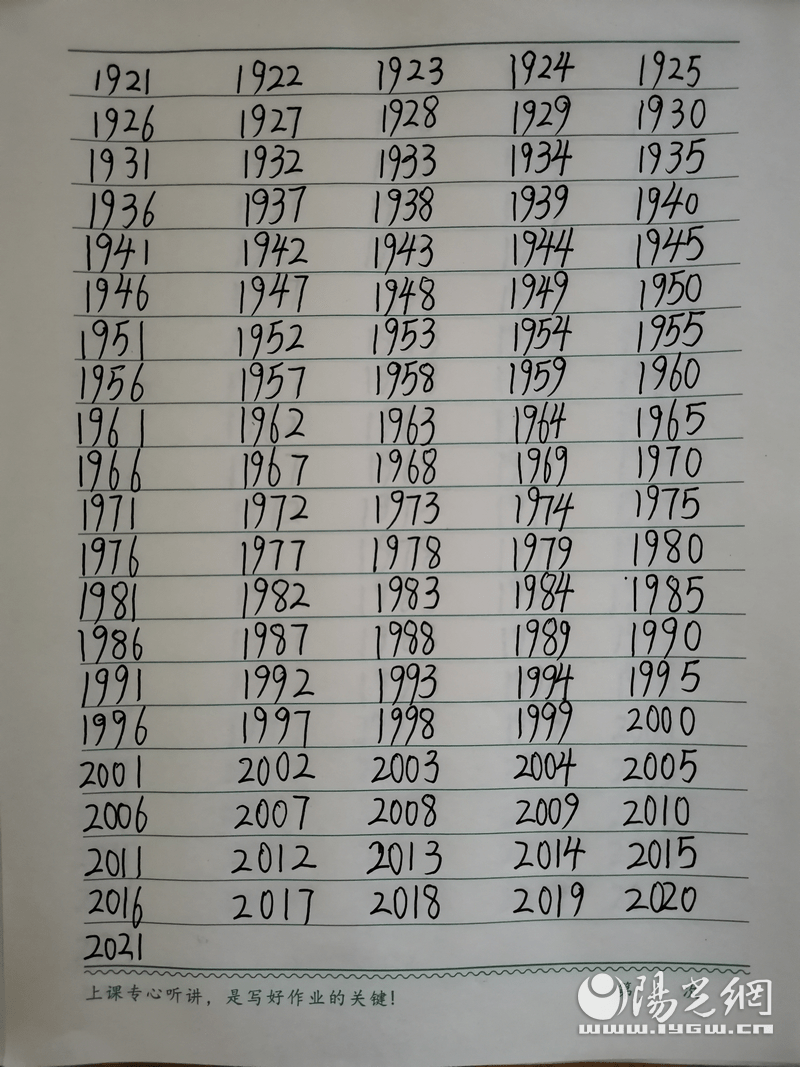 1921 1922 1923 1924 1925
1926 1927 1928 1929 1930
1931 1932 1933 1934 1935
1936 1937 1938 1939 1940
1941 1942 1943 1944 1945
1946 1947 1948 1949 1950
1951 1952 1953 1954 1955
1956 1957 1958 1959 1960
1961 1962 1963 1964 1965
1966 1967 1968 1969 1970
1971 1972 1973 1974 1975
1976 1977 1978 1979 1980
1981 1982 1983 1984 1985
1986 1987 1988 1989 1990
1991 1992 1993 1994 1995
1996 1997 1998 1999 2000
2001 2002 2003 2004 2005
2006 2007 2008 2009 2010
2011 2012 2013 2014 2015
2016 2017 2018 2019 2020
2021
上课专心听讲，是写好作业的关键！
陽光網
www.iygw.cn